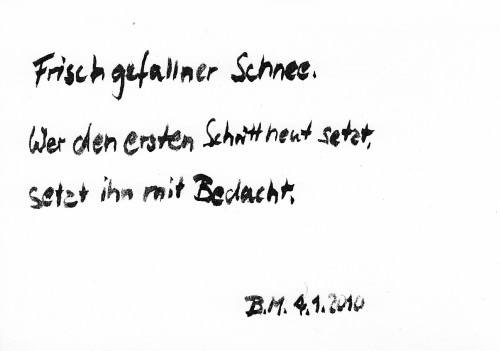 Frisch gefallner Schnee.
Wer den ersten Schritt heut setzt,
setzt ihn mit Bedacht.
B.M. 4.1.2010